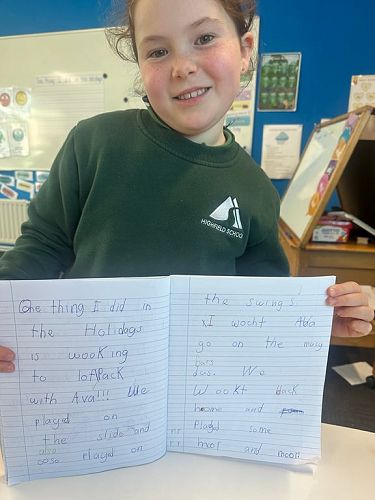 HIGHFIELD SCHOOL
One thing I did in
the Holidays
is wooking
to loffpack
with Ava!!! We
played on
the slide and
also
played on
the swings.
I wocht Ava
go on the
bars
We
Wookt back
home and
Played some
moor and moor